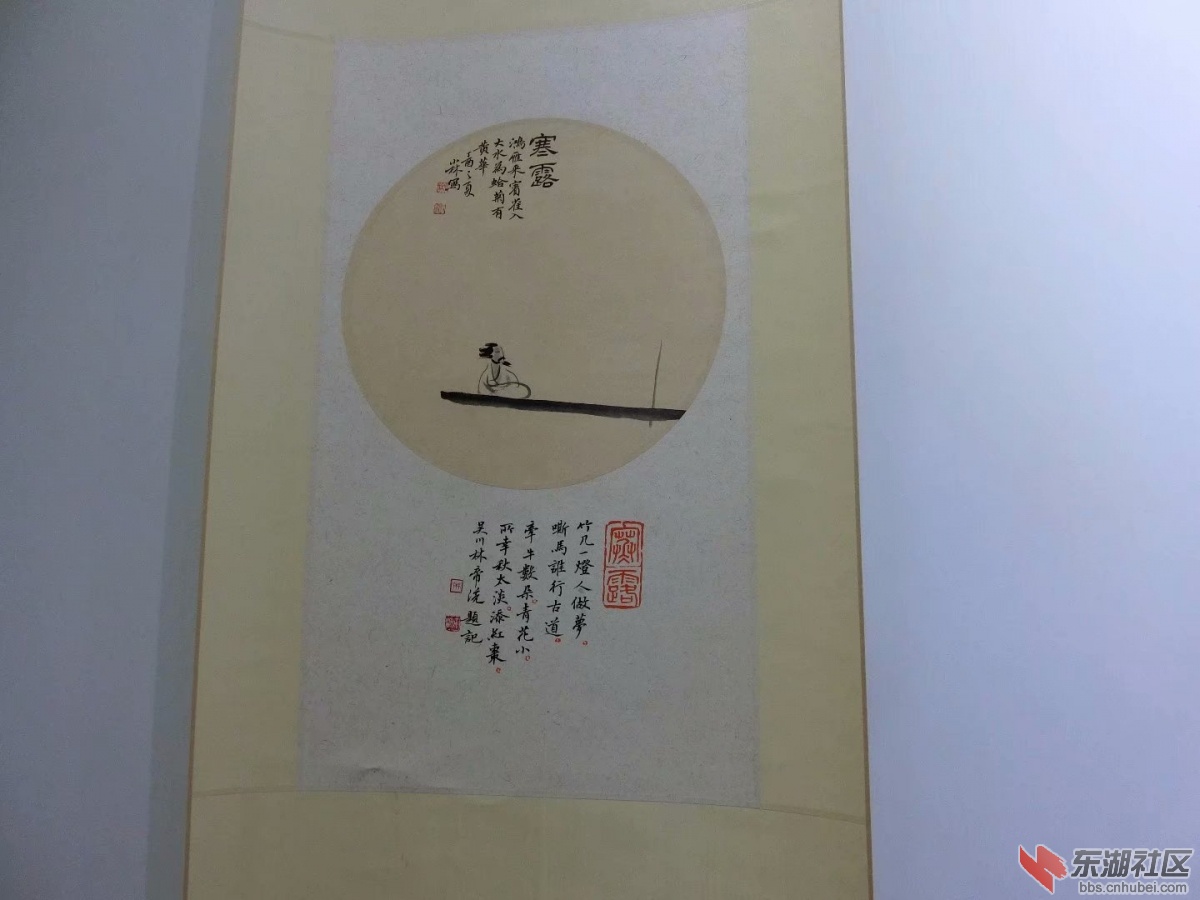 寒露
鴻雁来賓雀入
大水為蛤菊有
黄華
丁酉之夏
小林寫
寒露
竹几一燈人做夢。
嘶馬誰行古道。
牽牛數朵。青花小。
所幸秋太淡。添紅棗。
吴川林帝浣題記
东湖社区
bbs.cnhubei.com